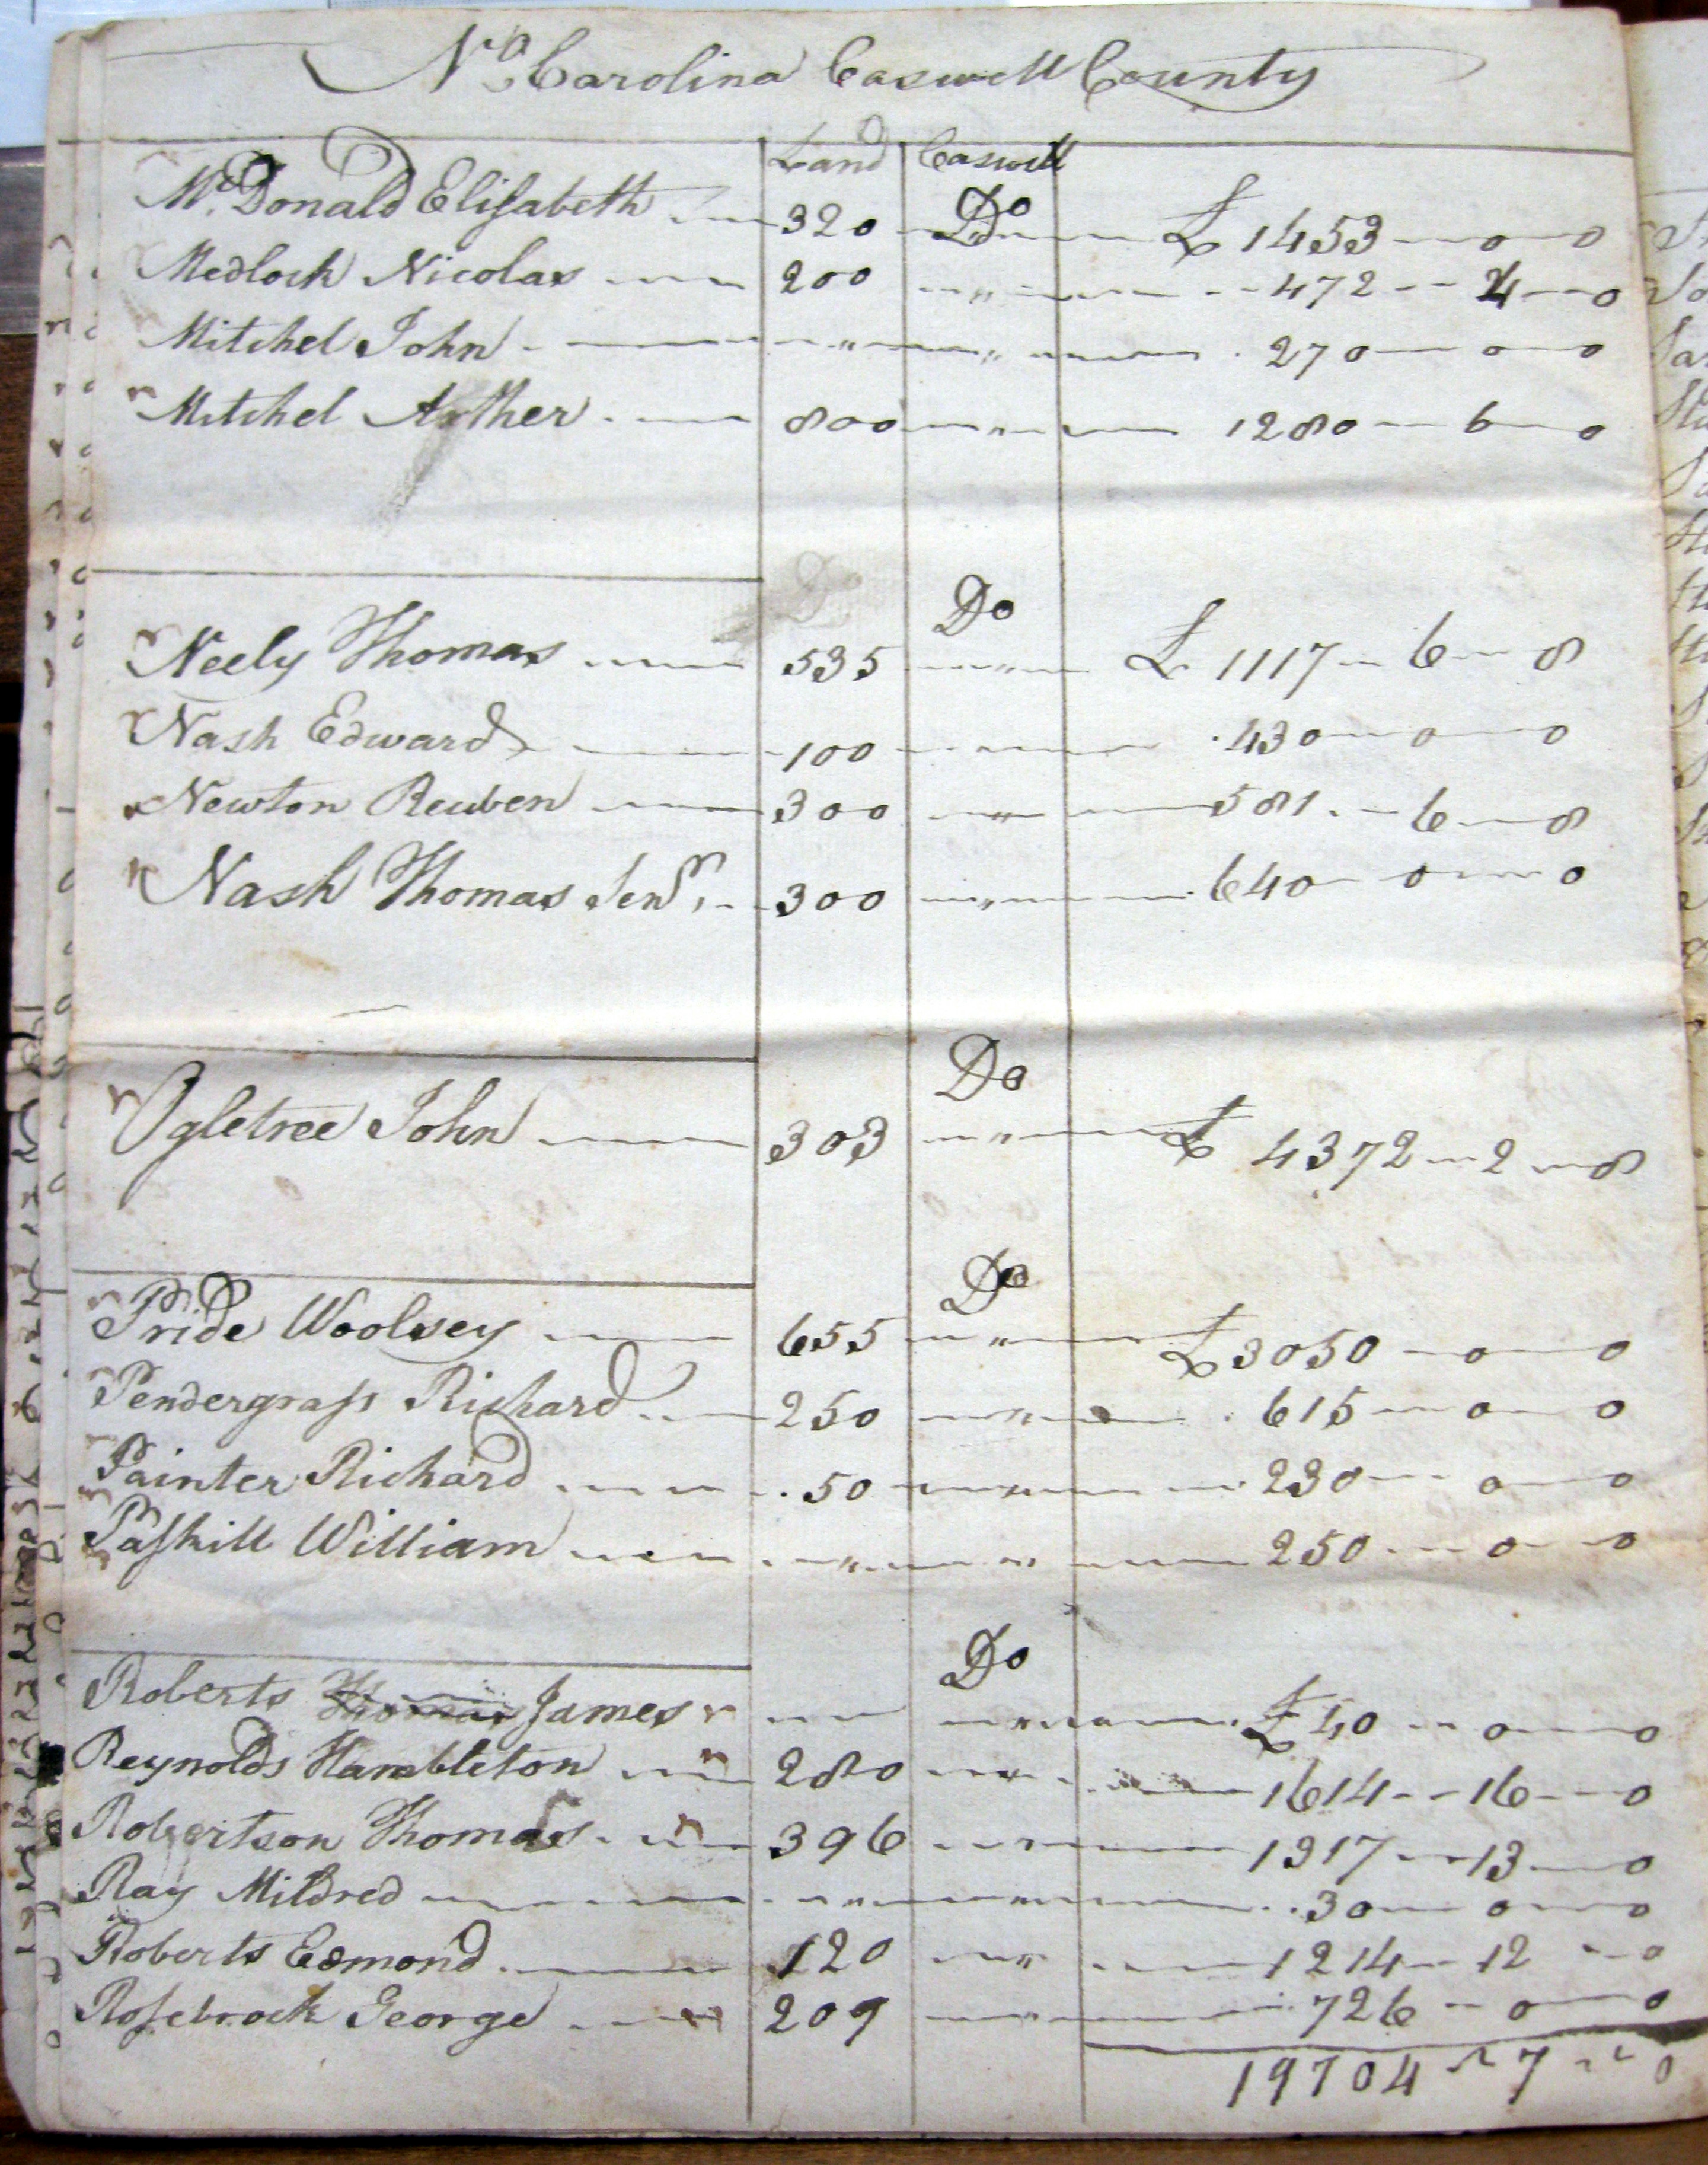 No Carolina Caswell County
Land Caswell
McDonald Elisabeth 320 Do £ 1453 - 0 - 0
Medlock Nicolas 200 " 472 - 4 - 0
Mitchel John " " 270 - 0 - 0
Mitchel Arther 800 " 1280 - 6 - 0
Do
Neely Thomas 535 " £ 1117 - 6 - 8
Nash Edward 100 430 - 0 - 0
Newton Reuben 300 " 581 - 6 - 8
Nash Thomas Senr 300 " 640 - 0 - 0
Do
Ogletree John 303 " £ 4372 - 2 - 8
Do
Pride Woolsey 655 " £ 3050 - 0 - 0
Pendergrass Richard 250 " 615 - 0 - 0
Painter Richard 50 " 230 - 0 - 0
Paskill William " " 250 - 0 - 0
Do
Roberts Thomas James " £ 40 - 0 - 0
Reynolds Hambleton 280 " 1614 - 16 - 0
Robertson Thomas 396 " 1317 - 13 - 0
Ray Mildred " " 30 - 0 - 0
Roberts Edmond 120 " 1214 - 12 - 0
Rosebrock George 209 " 726 - 0 - 0
19704 - 7 - 0